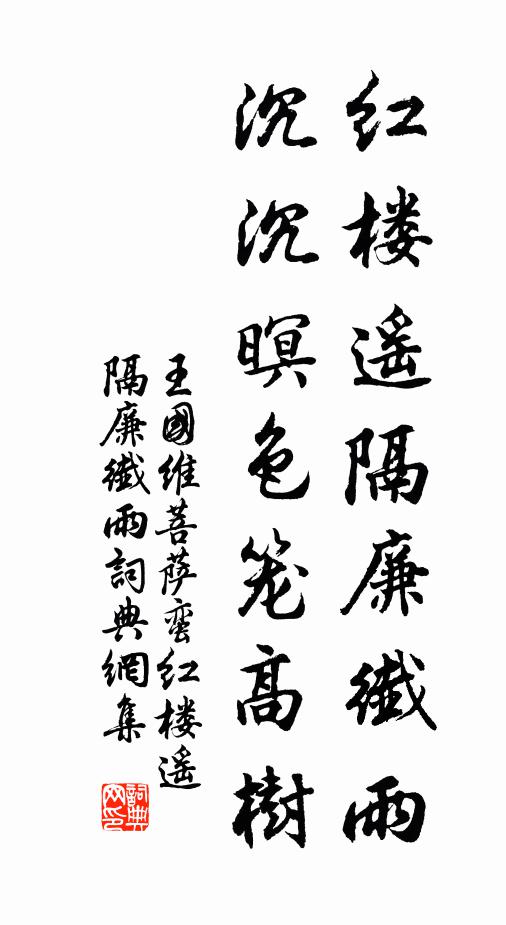 红楼遥隔廉纖雨
沉沉暝色笼高樹
王國维菩萨蛮红楼遥
隔廉纖雨詞典網集
詞典
网印